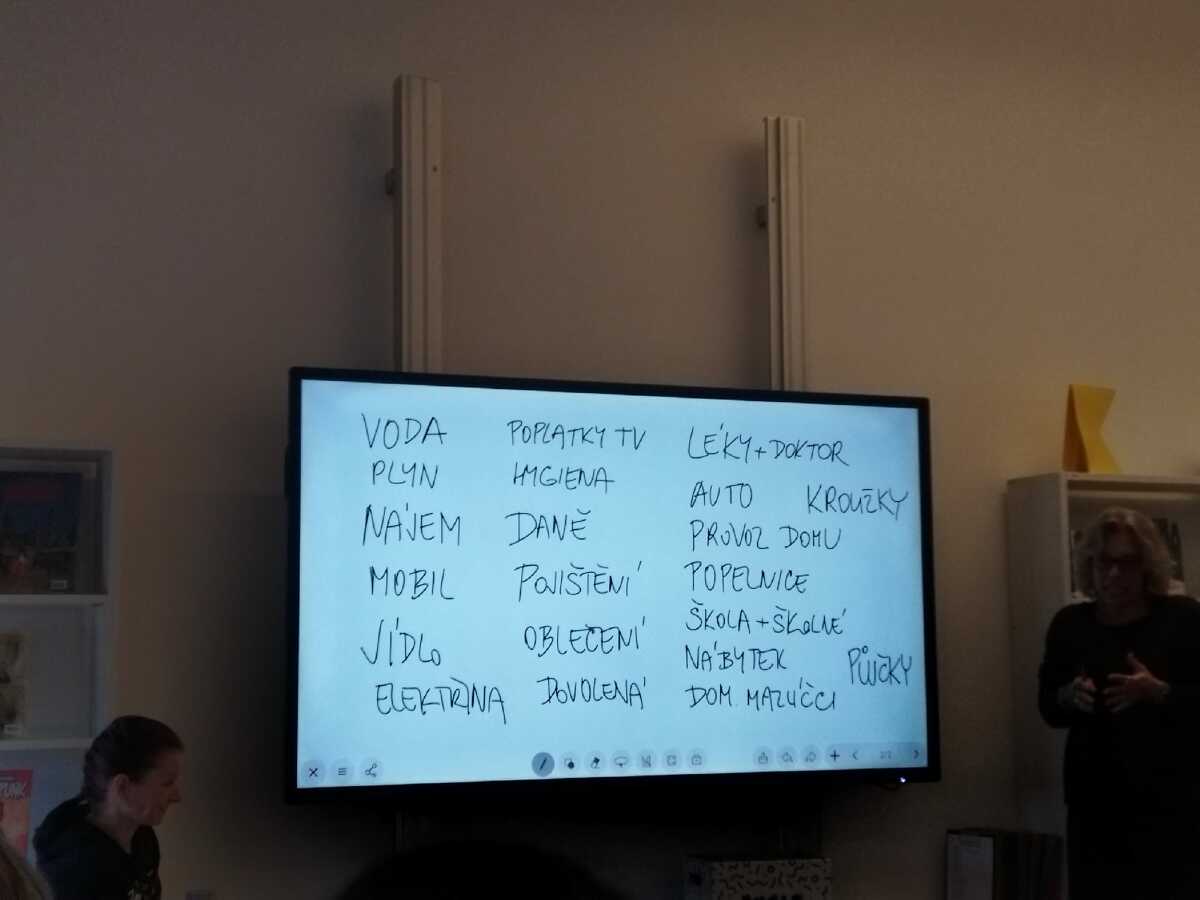 VODA
PLYN
NÁJEM
MOBIL
JÍDLO
ELEKTŘINA
POPLATKY TV
HYGIENA
DANĚ
POJIŠTĚNÍ
OBLEČENÍ
DOVOLENÁ
LÉKY + DOKTOR
AUTO KROUŽKY
PROVOZ DOMU
POPELNICE
ŠKOLA + ŠKOLNÉ
NÁBYTEK
PŮJČKY
DOM. MAZLÍČCI